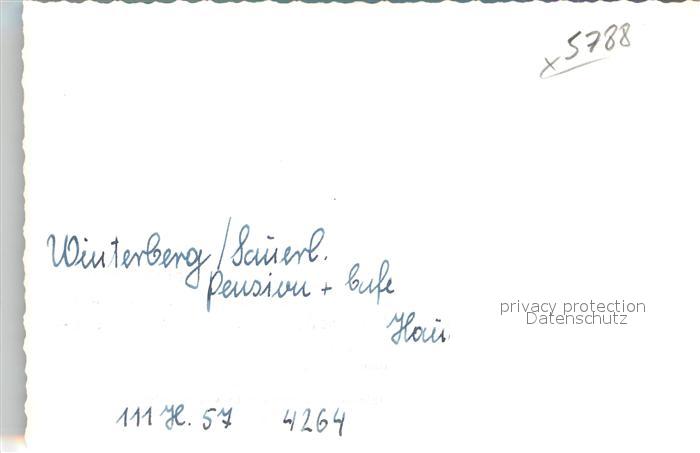 x5788
Winterberg / Sauerl.
Pension + Cafe
privacy protection
Datenschutz
111 H. 57 4264